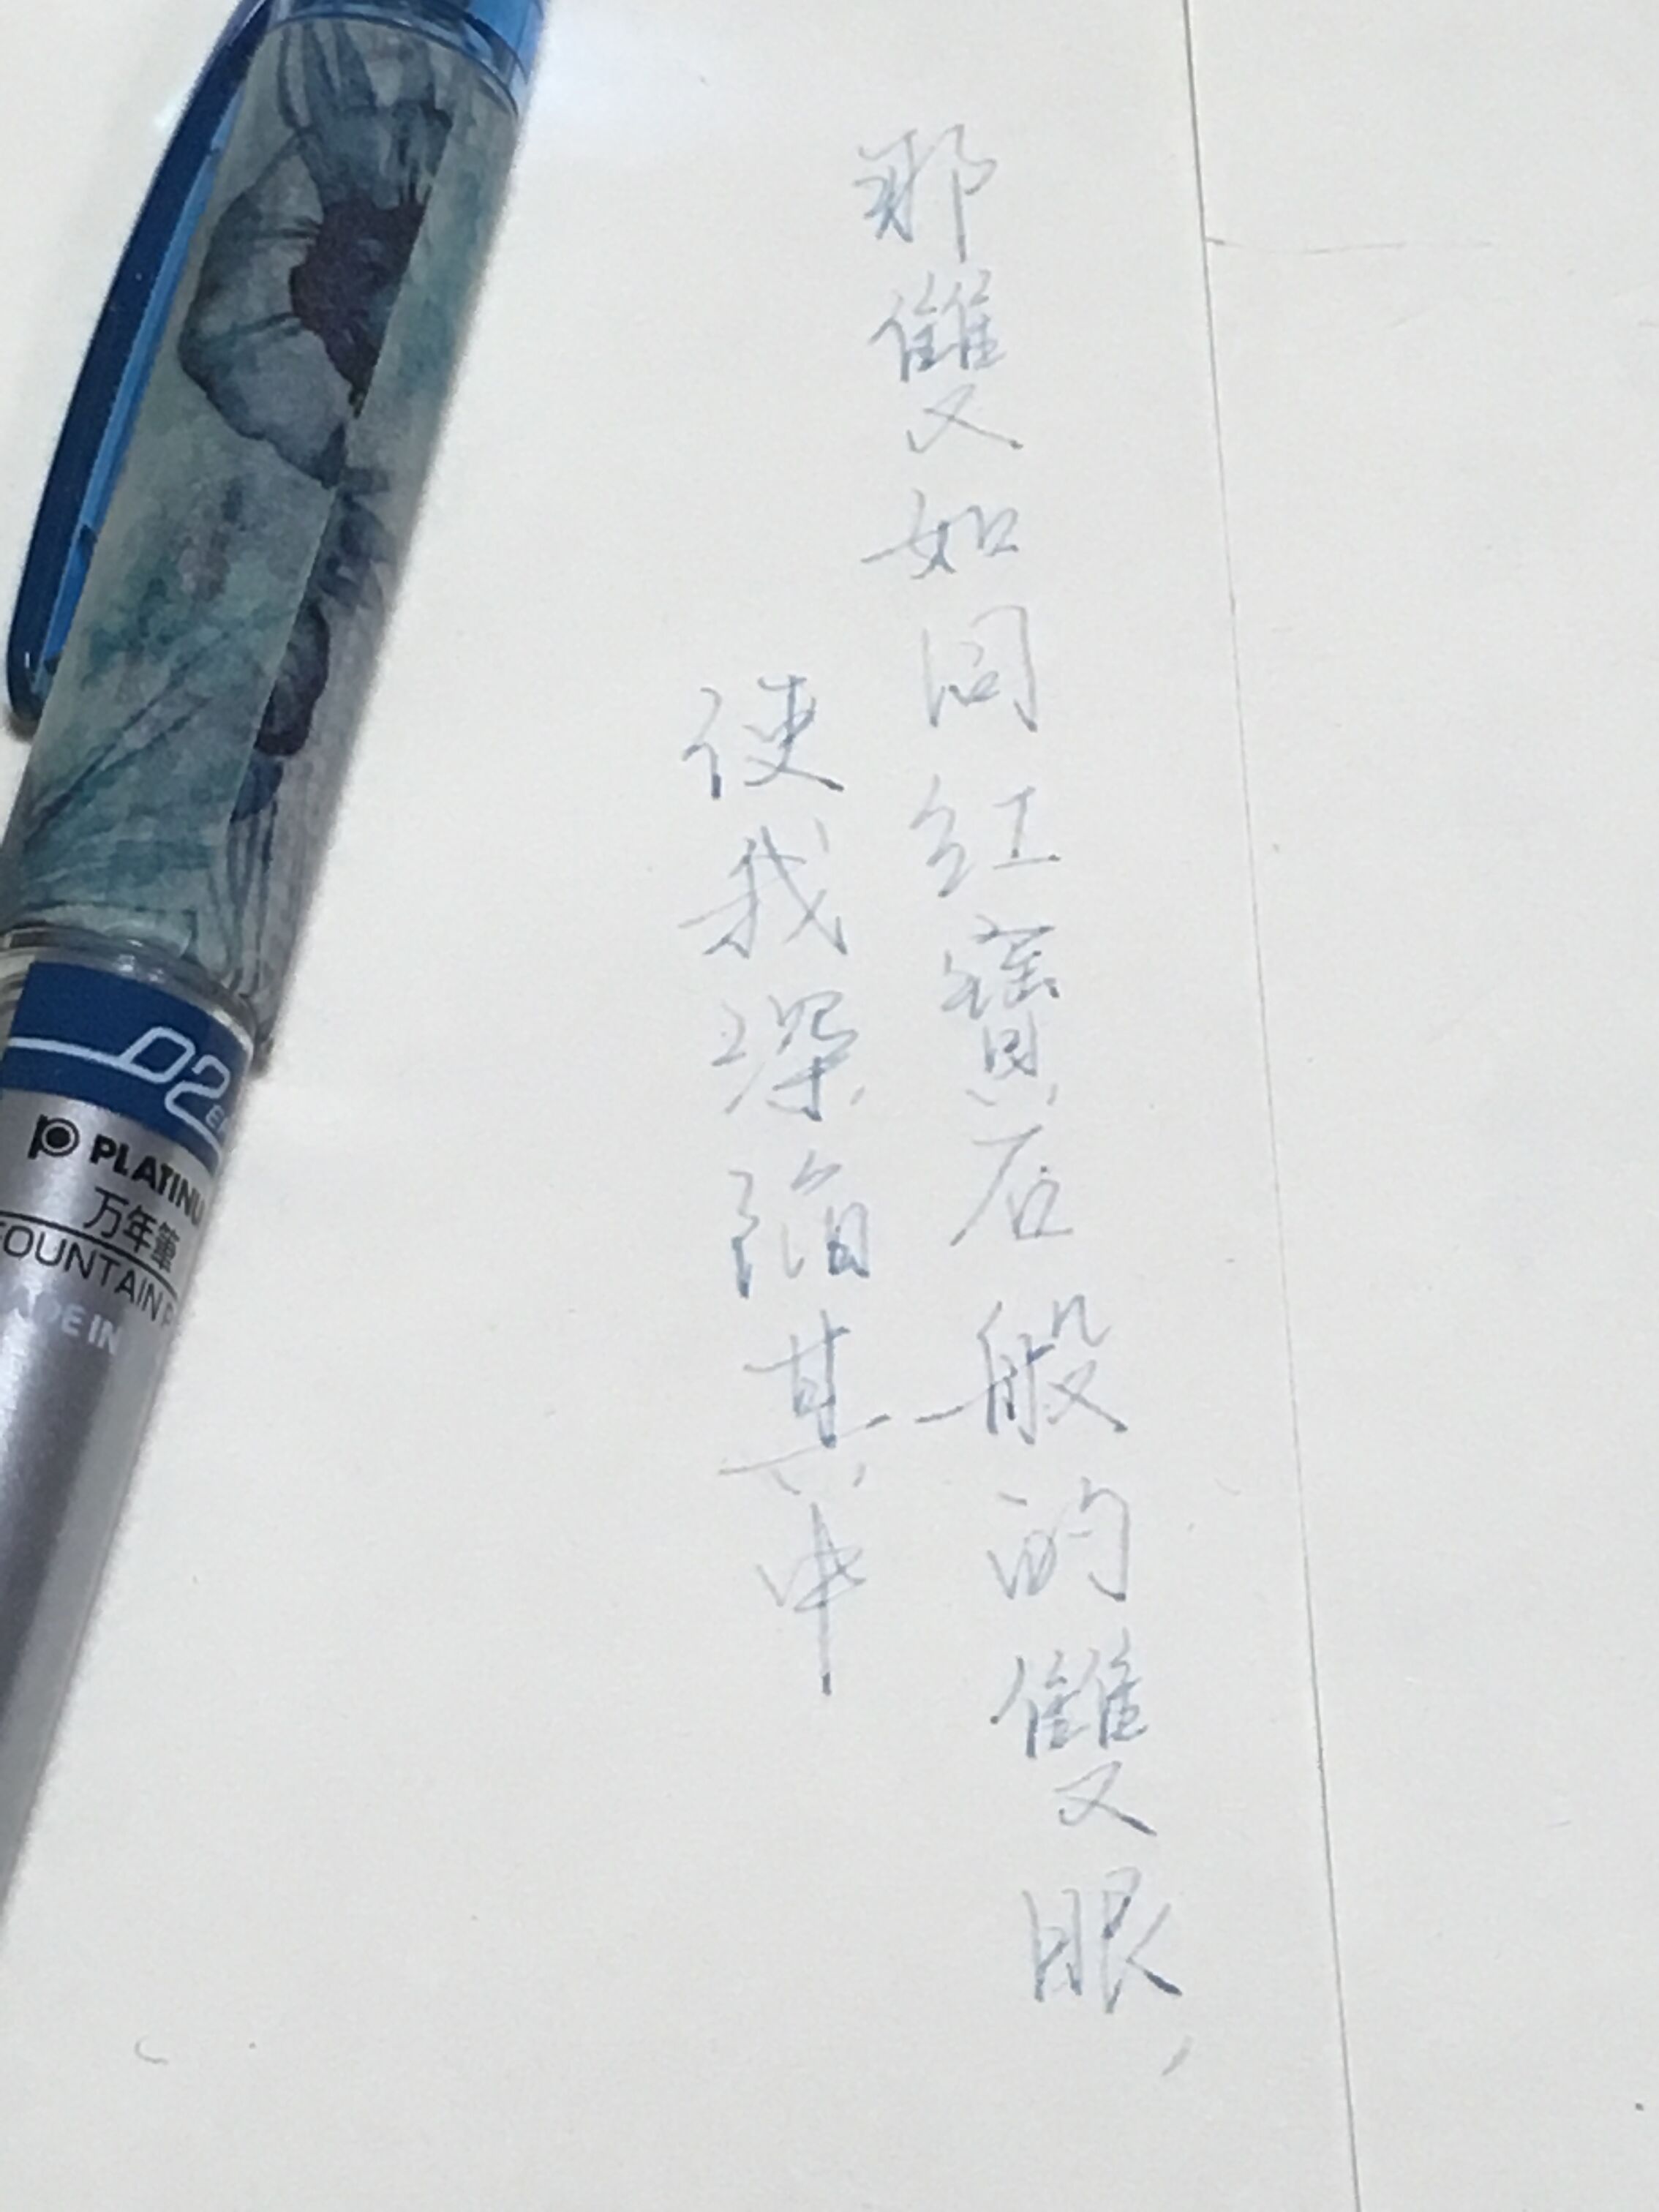 那雙如同紅寶石般的雙眼，
使我深陷其中
D2
PLATINU
万年筆
FOUNTAIN P
ADE IN